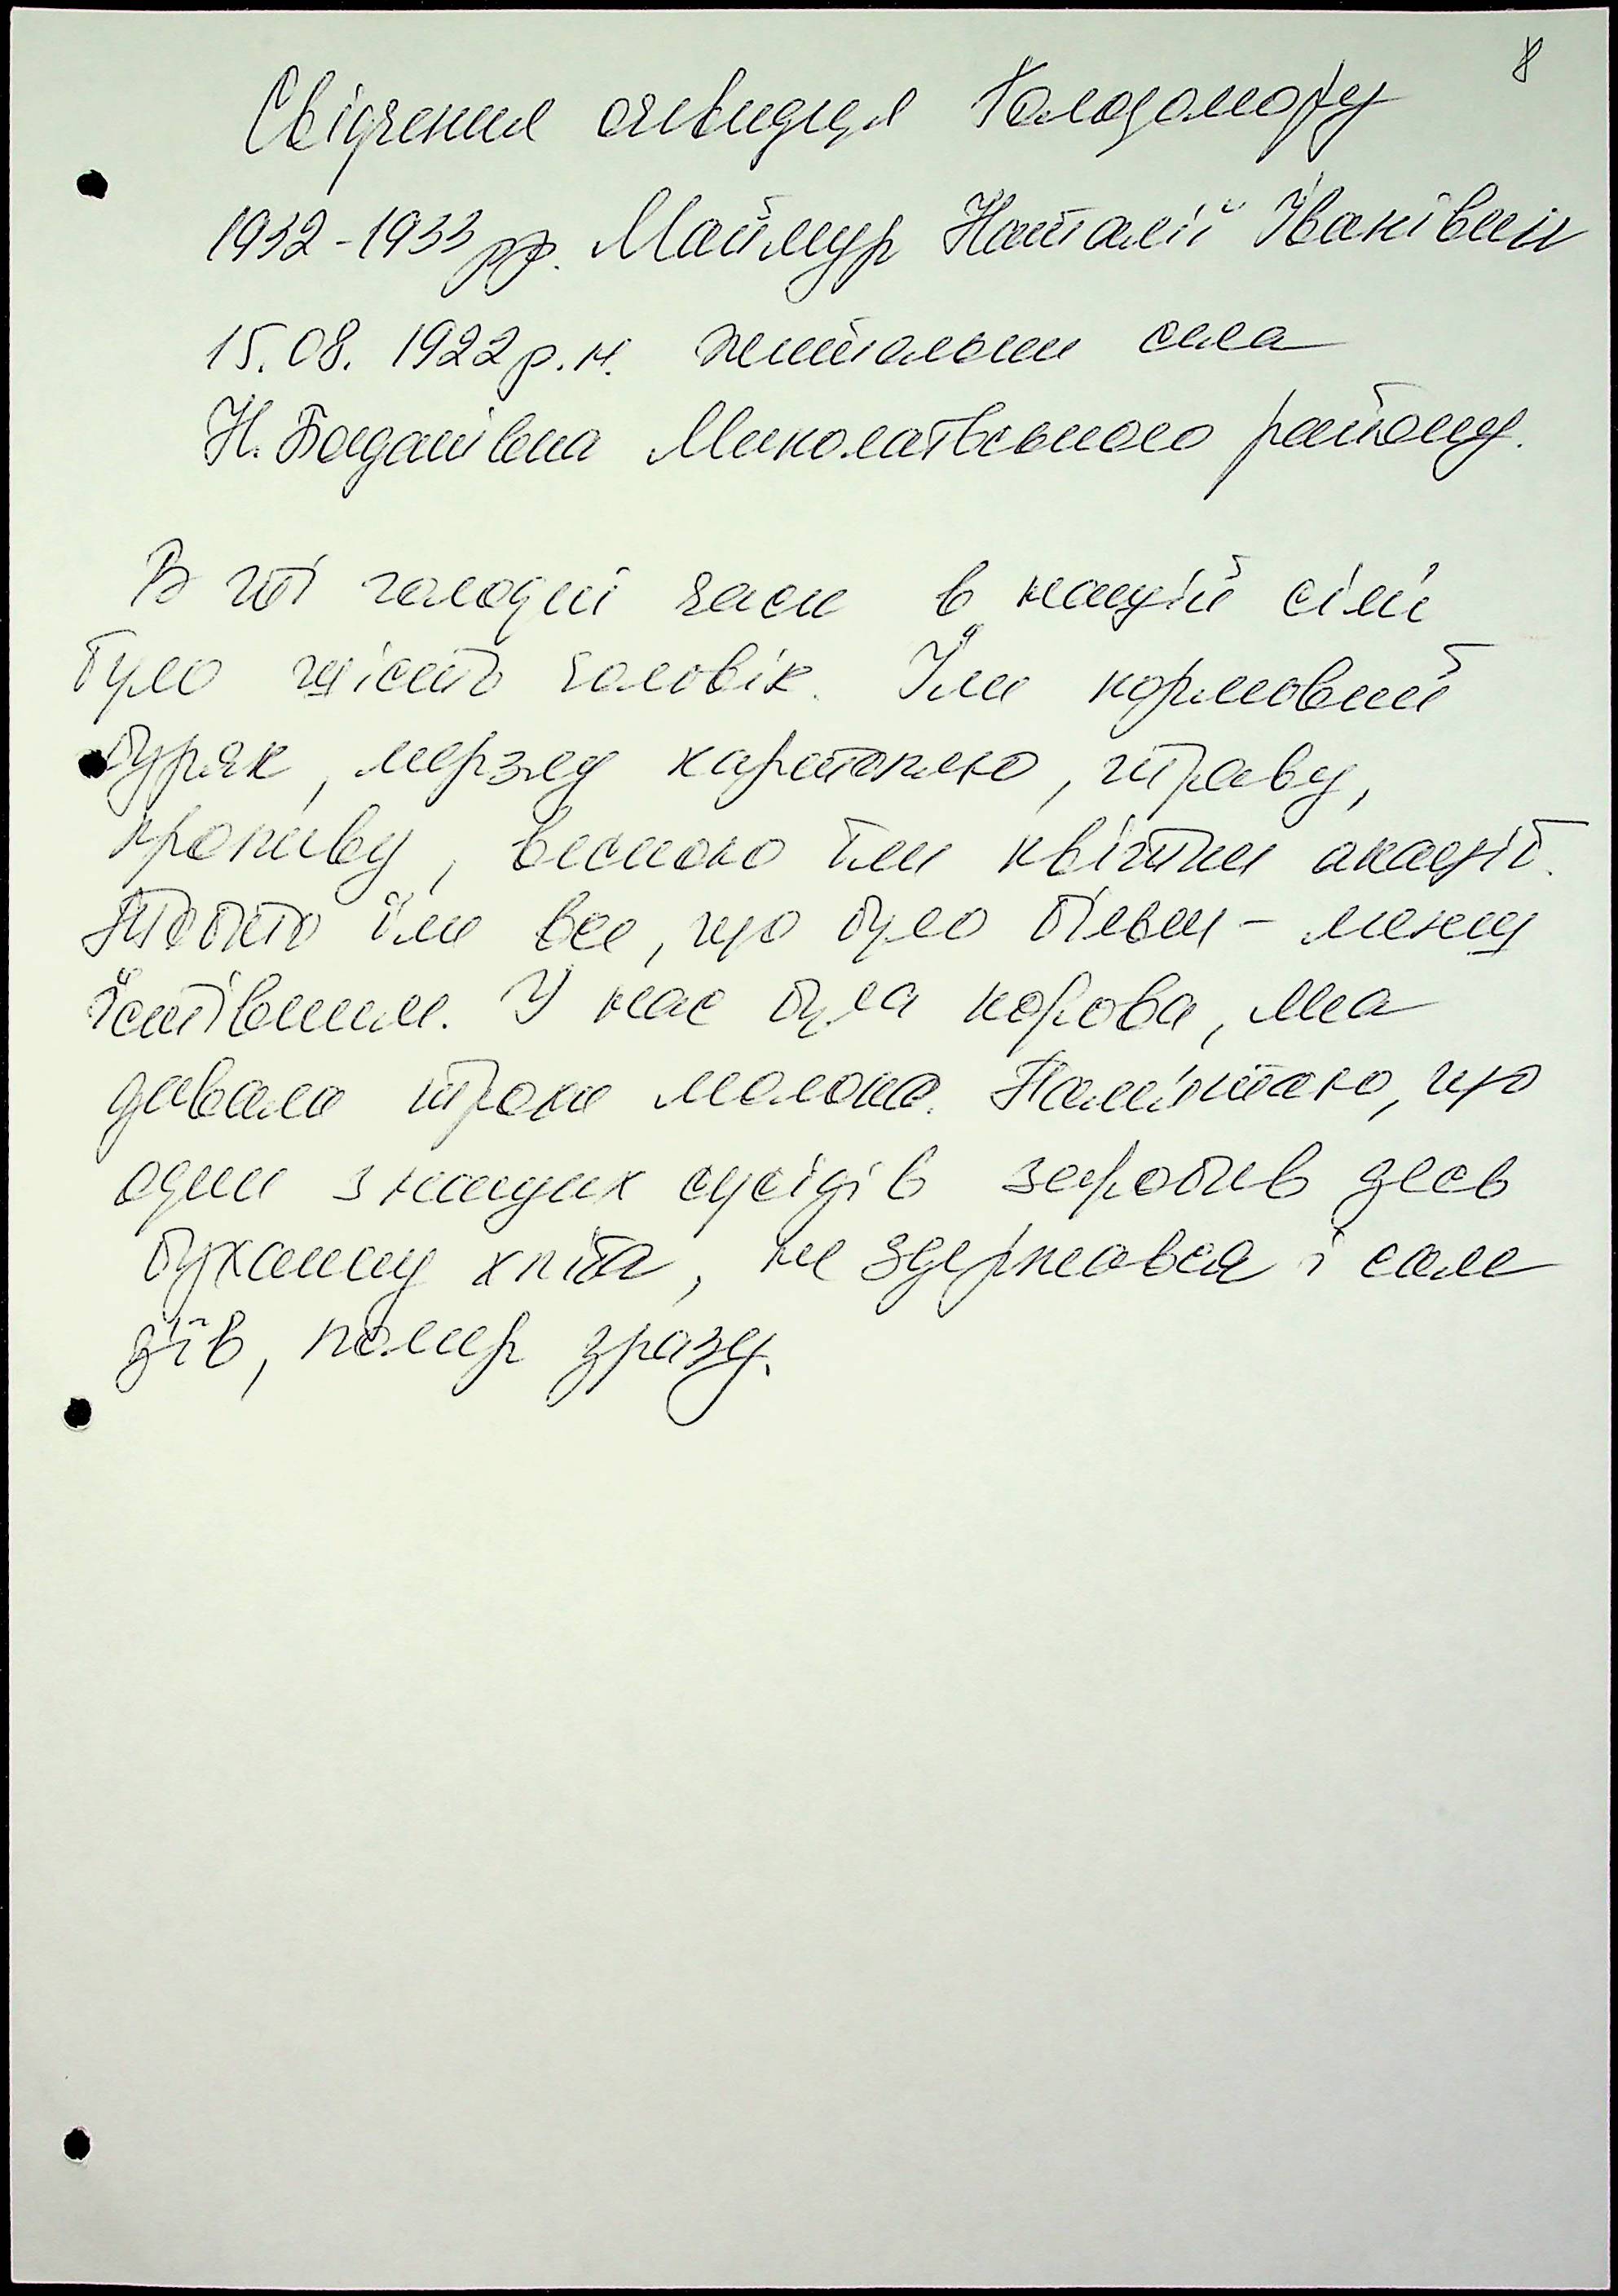 8
Свідчення очевидця Голодомору
1932-1933 рр. Маймур Наталії Іванівни
15.08.1922 р.н. жительки села
Н. Богданівка Миколаївського району.
В ті голодні часи в нашій сім'ї
було шість чоловік. Їли кормовий
буряк, мерзлу картоплю, траву,
кропиву, весною їли квітки акації.
Тобто їли все, що було більш - менш
їстівним. У нас була корова, яка
давала трохи молока. Пам'ятаю, що
один з наших сусідів заробив десь
буханку хліба, не здержався і сам
з'їв, помер зразу.